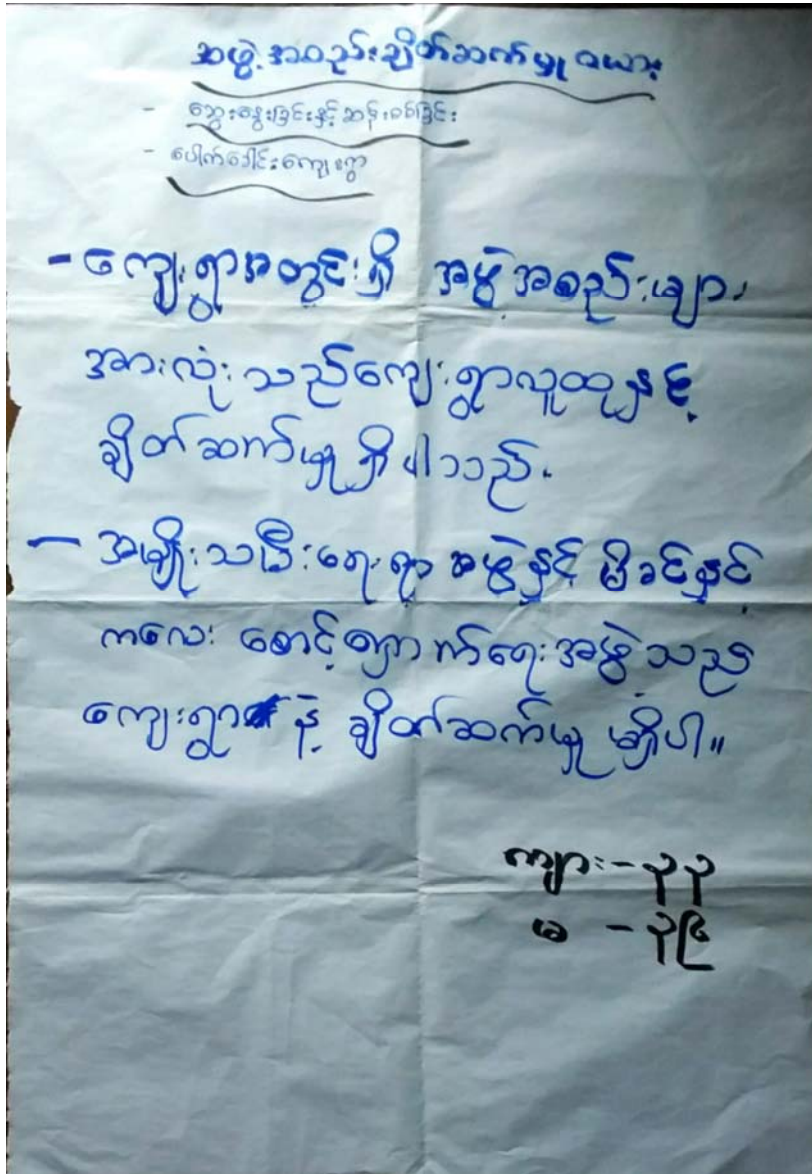 အဖွဲ့အစည်းချိတ်ဆက်မှု ဇယား
- ဆွေးနွေးခြင်းနှင့်ဆန်းစစ်ခြင်း
- ပေါက်ခေါင်းကျေးရွာ
- ကျေးရွာအတွင်းရှိ အဖွဲ့အစည်းများ
အားလုံးသည်ကျေးရွာလူထုနှင့်
ချိတ်ဆက်မှုရှိပါသည်.
- အမျိုးသမီးရေးရာ အဖွဲ့နှင့် မိခင်နှင့်
ကလေး စောင့်ရှောက်ရေးအဖွဲ့သည်
ကျေးရွာ နဲ့ ချိတ်ဆက်မှု မရှိပါ။
ကျား - ၃၃
မ - ၃၉